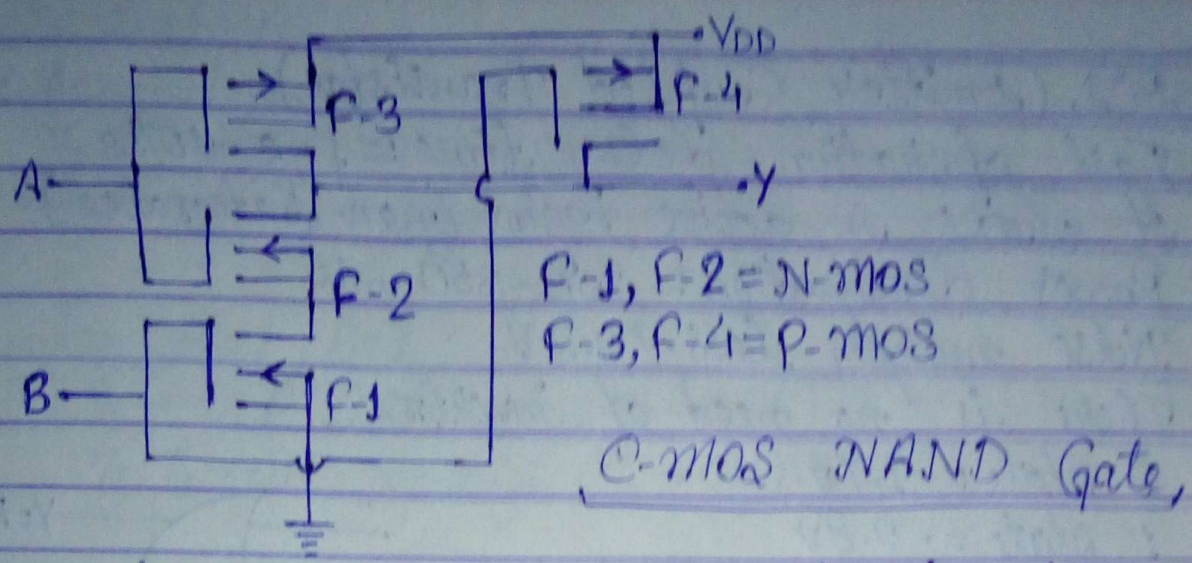 VDD
F-3
F-4
A
Y
F-2
F-1, F-2 = N-mos
F-3, F-4 = P-mos
B
F-1
C-mos NAND Gate,